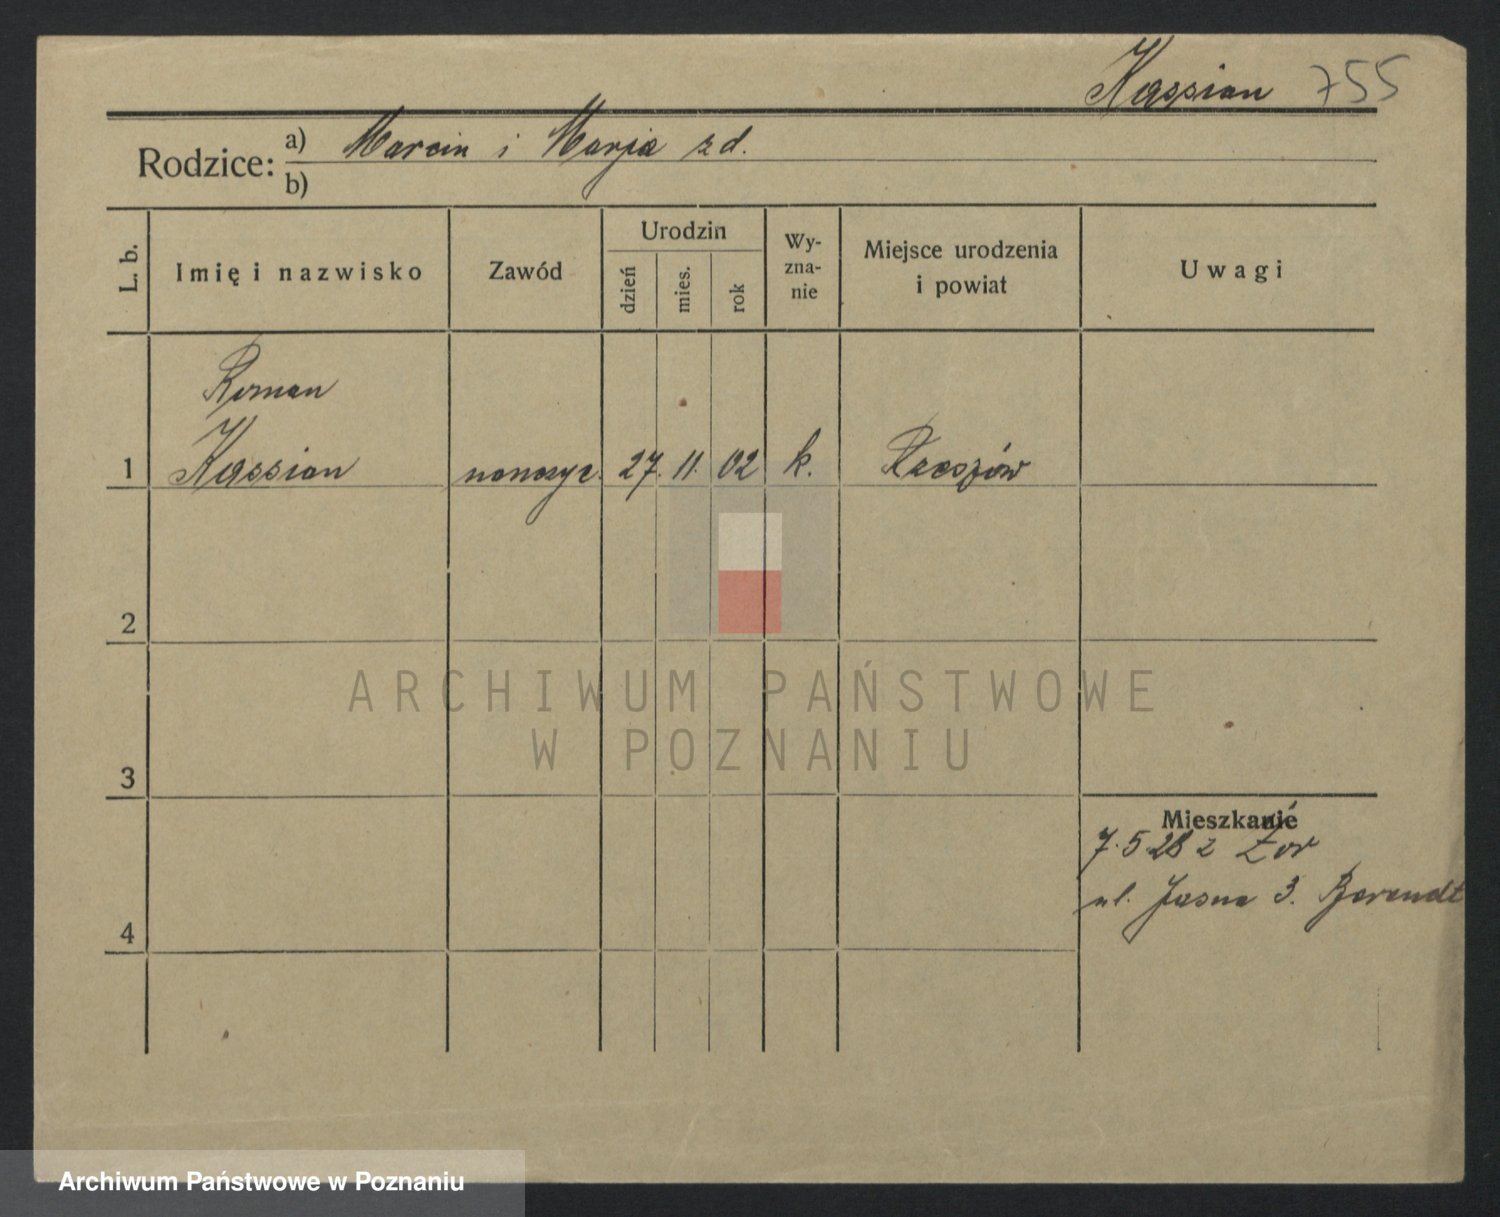 Kassian 755
Rodzice: a) Marcin i Marja zd.
b)
L. b. Imię i nazwisko Zawód Urodzin dzień mies. rok Wy-zna-nie Miejsce urodzenia i powiat Uwagi
Roman
1 Kassian nauczyc. 27. 11. 02 k. Rzeszów
2
ARCHIWUM PAŃSTWOWE
W POZNANIU
3
Mieszkanie
7.5.28 z Żor
ul. Jasna 3. Berendt
4
Archiwum Państwowe w Poznaniu